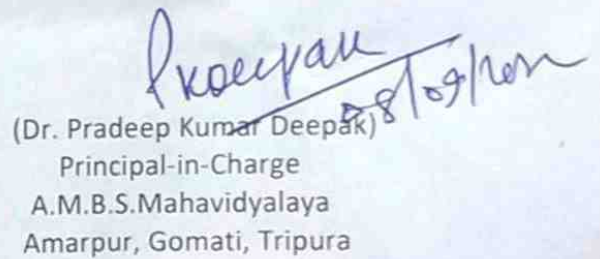 Pkdeepak
08/09/2022
(Dr. Pradeep Kumar Deepak)
Principal-in-Charge
A.M.B.S.Mahavidyalaya
Amarpur, Gomati, Tripura